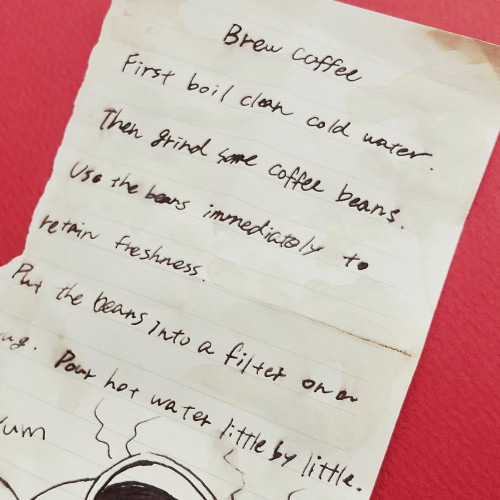 Brew Coffee
First boil clean cold water.
Then grind some coffee beans.
Use the beans immediately to
retain freshness.
Put the beans into a filter on a
Pour hot water little by little.
Yum